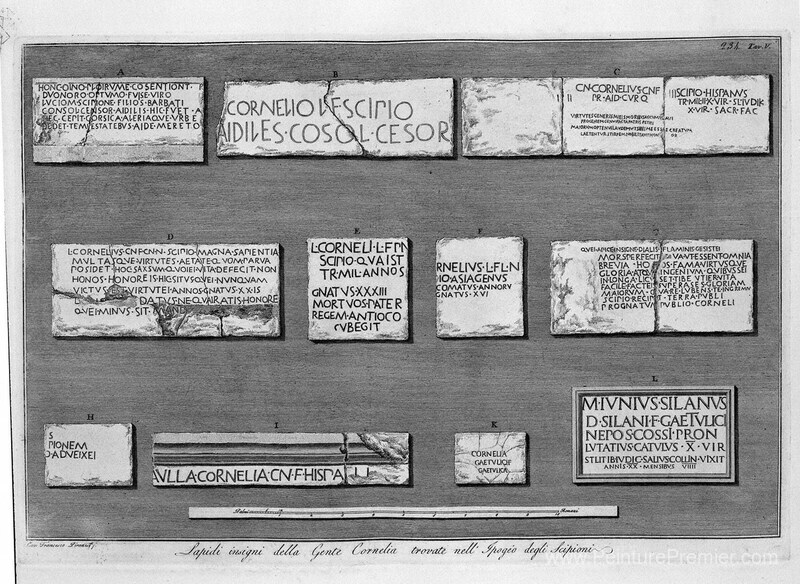 234 Tav. V.
A
HONC OINO PLOIRUME COSENTIONT
DUONORO OPTUMO FUISE VIRO
LUCIOM SCIPIONE FILIOS BARBATI
CONSOL CENSOR AIDILIS HIC FUET A
HEC CEPIT CORSICA ALERIAQUE URBE
DEDET TEMPESTATEBUS AIDE MERETO
B
CORNELIO L F SCIPIO
AIDILES COSOL CESOR
C
CN·CORNELIUS·CN·F
PR·AID·CUR·Q
VIRTUTES GENERIS
SCIPIO·HISPANUS
TR·MIL·II·X·VIR·SL·IUDIK
X·VIR·SACR·FAC
D
L·CORNELIUS·CN·F·CN·N·SCIPIO·MAGNA·SAPIENTIA
MULTASQUE·VIRTUTES·AETATE·QUOM·PARVA
POSIDET·HOC·SAXSUM·QUOIEI·VITA·DEFECIT·NON
HONOS·HONORE·IS·HIC·SITUS·QUEI·NUNQUAM
VICTUS·EST·VIRTUTEI·ANNOS·GNATUS·XX·IS
DATUS·NE·QUAIRATIS·HONORE
QUEI·MINUS·SIT·MAND
E
L·CORNELI·L·F·P·N
SCIPIO·QUAIST
TR·MIL·ANNOS
GNATUS·XXXIII
MORTUOS·PATER
REGEM·ANTIOCO
SUBEGIT
F
RNELIUS·L·F·L·N
IO·ASIAGENUS
COMATUS·ANNORU
GNATUS·XVI
QUEI·APICE·INSIGNE·DIALIS·FLAMINIS·GESISTEI
MORS·PERFECIT TUA·UT·ESSENT·OMNIA
BREVIA·HONOS·FAMA·VIRTUSQUE
GLORIA·ATQUE·INGENIUM·QUIBUS·SEI
IN·LONGA·LICUISET·TIBE·UTIER·VITA
FACILE·FACTEIS·SUPERASES·GLORIAM
MAIORUM·QUA·RE·LUBENS·TE·IN·GREMIU
SCIPIO·RECIPIT·TERRA·PUBLI
PROGNATUM·PUBLIO·CORNELI
H
S
PIONEM
O·ADVEIXEI
I
AULLA·CORNELIA·CN·F·HISPALLI
K
CORNELIA
GAETULICI·F
GAETULICA
L
M·IUNIUS·SILANUS
D·SILANI·F·GAETULICI
NEPOS·COSSI·PRON
LUTATIUS·CATULUS·X·VIR
STLITIB·IUDIC·SALIUS·COLLIN·VIXIT
ANNIS·XX·MENSIBUS VIIII
Palmi Romani
Cav. Francesco Piranesi f.
Lapidi insigni della Gente Cornelia trovate nell' Ipogeo degli Scipioni
www.PeinturePremier.com